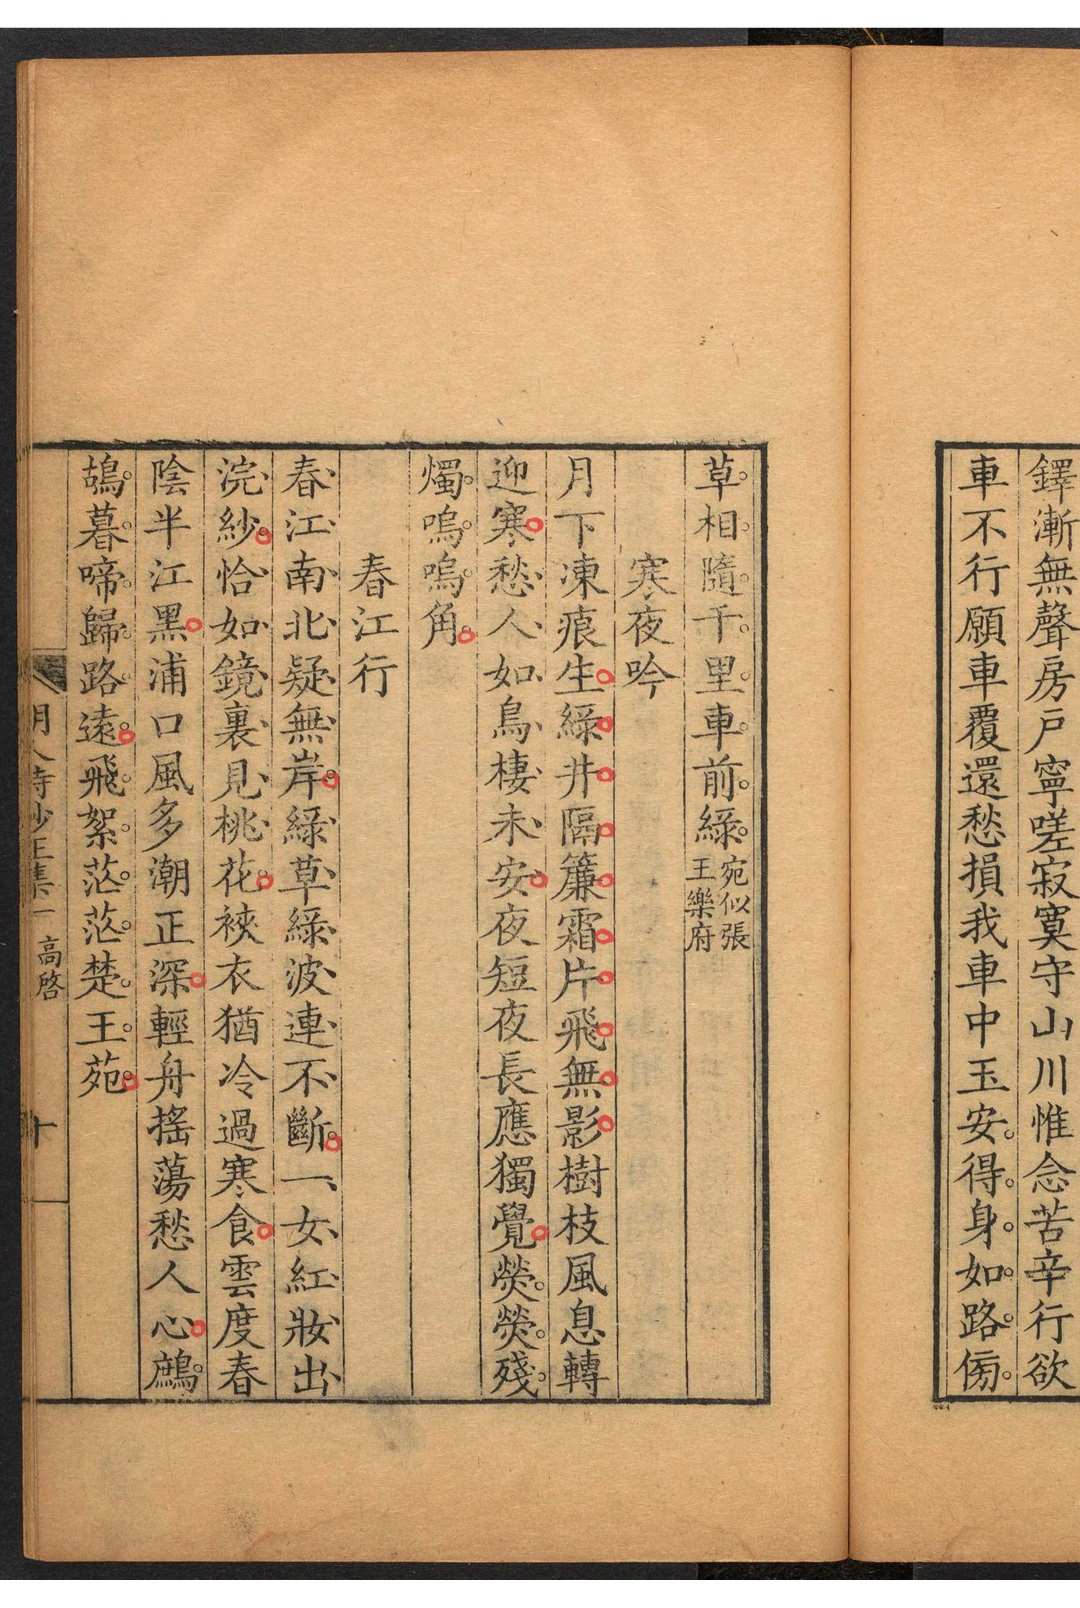 鐸漸無聲房戶寧嗟寂寞守山川惟念苦辛行欲
車不行願車覆還愁損我車中玉安得身如路傍
草相隨千里車前綠宛似張
王樂府
寒夜吟
月下凍痕生綠井隔簾霜片飛無影樹枝風息轉
迎寒愁人如鳥棲未安夜短夜長應獨覺熒熒殘
燭嗚嗚角
春江行
春江南北疑無岸綠草綠波連不斷一女紅妝出
浣紗恰如鏡裏見桃花裌衣猶冷過寒食雲度春
陰半江黑浦口風多潮正深輕舟搖蕩愁人心鷓
鴣暮啼歸路遠飛絮茫茫楚王苑
明人詩鈔正集一 高啓 十